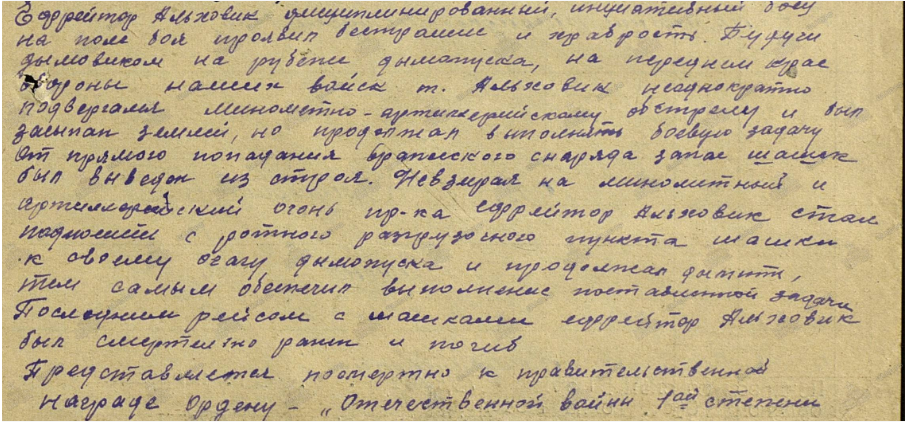 Ефрейтор Альховик дисциплинированный, инциативный боец
на поле боя проявил бесстрашие и храбрость. Будучи
дымовиком на рубеже дымопуска, на переднем крае
обороны наших войск т. Альховик неоднократно
подвергался минометно-артиллерийскому обстрелу и был
засыпан землей, но продолжал выполнять боевую задачу
От прямого попадания вражеского снаряда запас шашек
был выведен из строя. Невзирая на минометный и
артиллерийский огонь пр-ка ефрейтор Альховик стал
подносить с ротного разгрузочного пункта шашки
к своему очагу дымопуска и продолжал дымить,
тем самым обеспечил выполнение поставленной задачи
Последним рейсом с шашками ефрейтор Альховик
был смертельно ранен и погиб
Представляется посмертно к правительственной
награде Ордену - „Отечественной войны 1ой степени